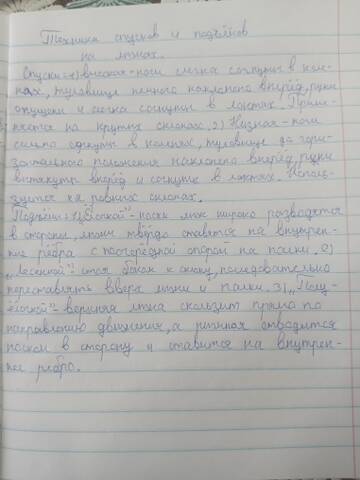 Техника спусков и подъёмов
на лыжах.
Спуски: 1) высокая - ноги слегка согнуты в коле-
нях, туловище немного наклонено вперёд, руки
опущены и слегка согнуты в локтях. Приме-
няется на крутых склонах. 2) Низкая - ноги
сильно согнуты в коленях, туловище до гори-
зонтального положения наклонено вперёд, руки
вытянуты вперёд и согнуты в локтях. Исполь-
зуется на ровных склонах.
Подъём: 1) "Ёлочкой" - носки лыж широко разводятся
в стороны, лыжи твёрдо ставятся на внутрен-
ние рёбра с поочерёдной опорой на палки. 2)
"Лесенкой" - стоя боком к склону, последовательно
переставлять вверх лыжи и палки. 3) "Полу-
ёлочкой" - верхняя лыжа скользит прямо по
направлению движения, а нижняя отводится
носком в сторону и ставится на внутрен-
нее ребро.